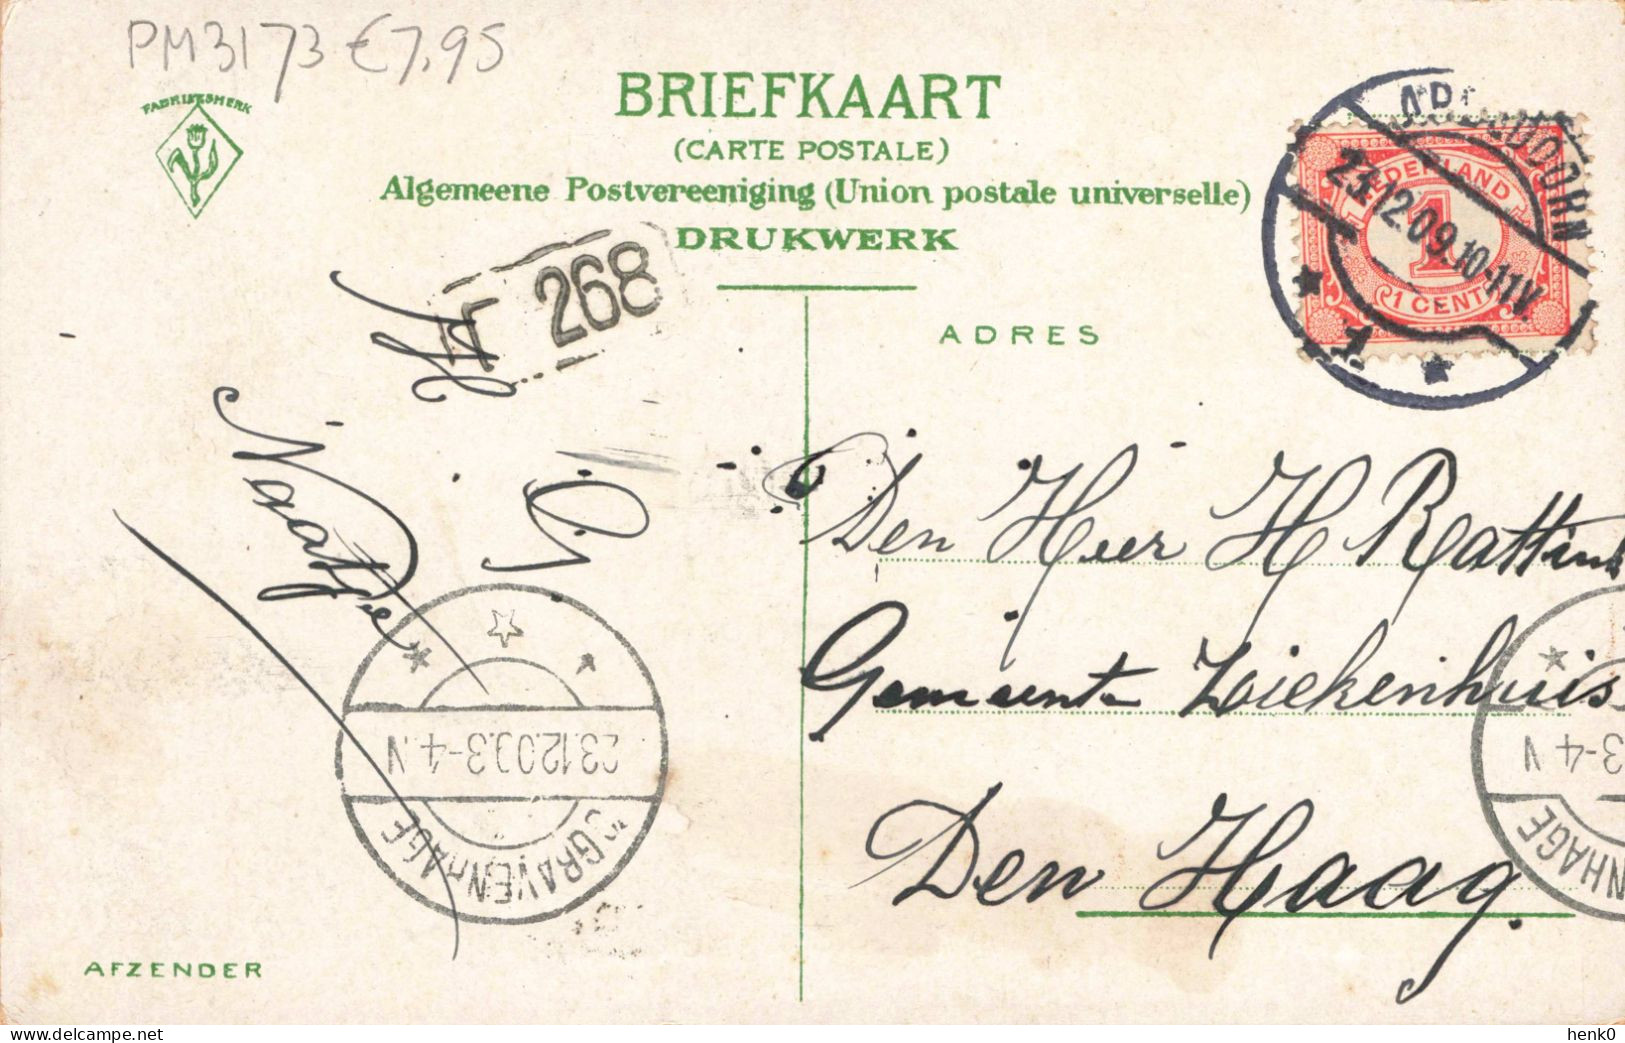 PM3173 €7,95
FABRIEKSMERK
BRIEFKAART
(CARTE POSTALE)
Algemeene Postvereeniging (Union postale universelle)
DRUKWERK
NEDERLAND
1
1 CENT
23.12.09.10-11V.
1
T 268
ADRES
Den Heer H
Gemeente Ziekenhuis
Den Haag.
23.12.09.3-4 N
'S GRAVENHAGE
3-4 N
NHAGE
AFZENDER
henk0